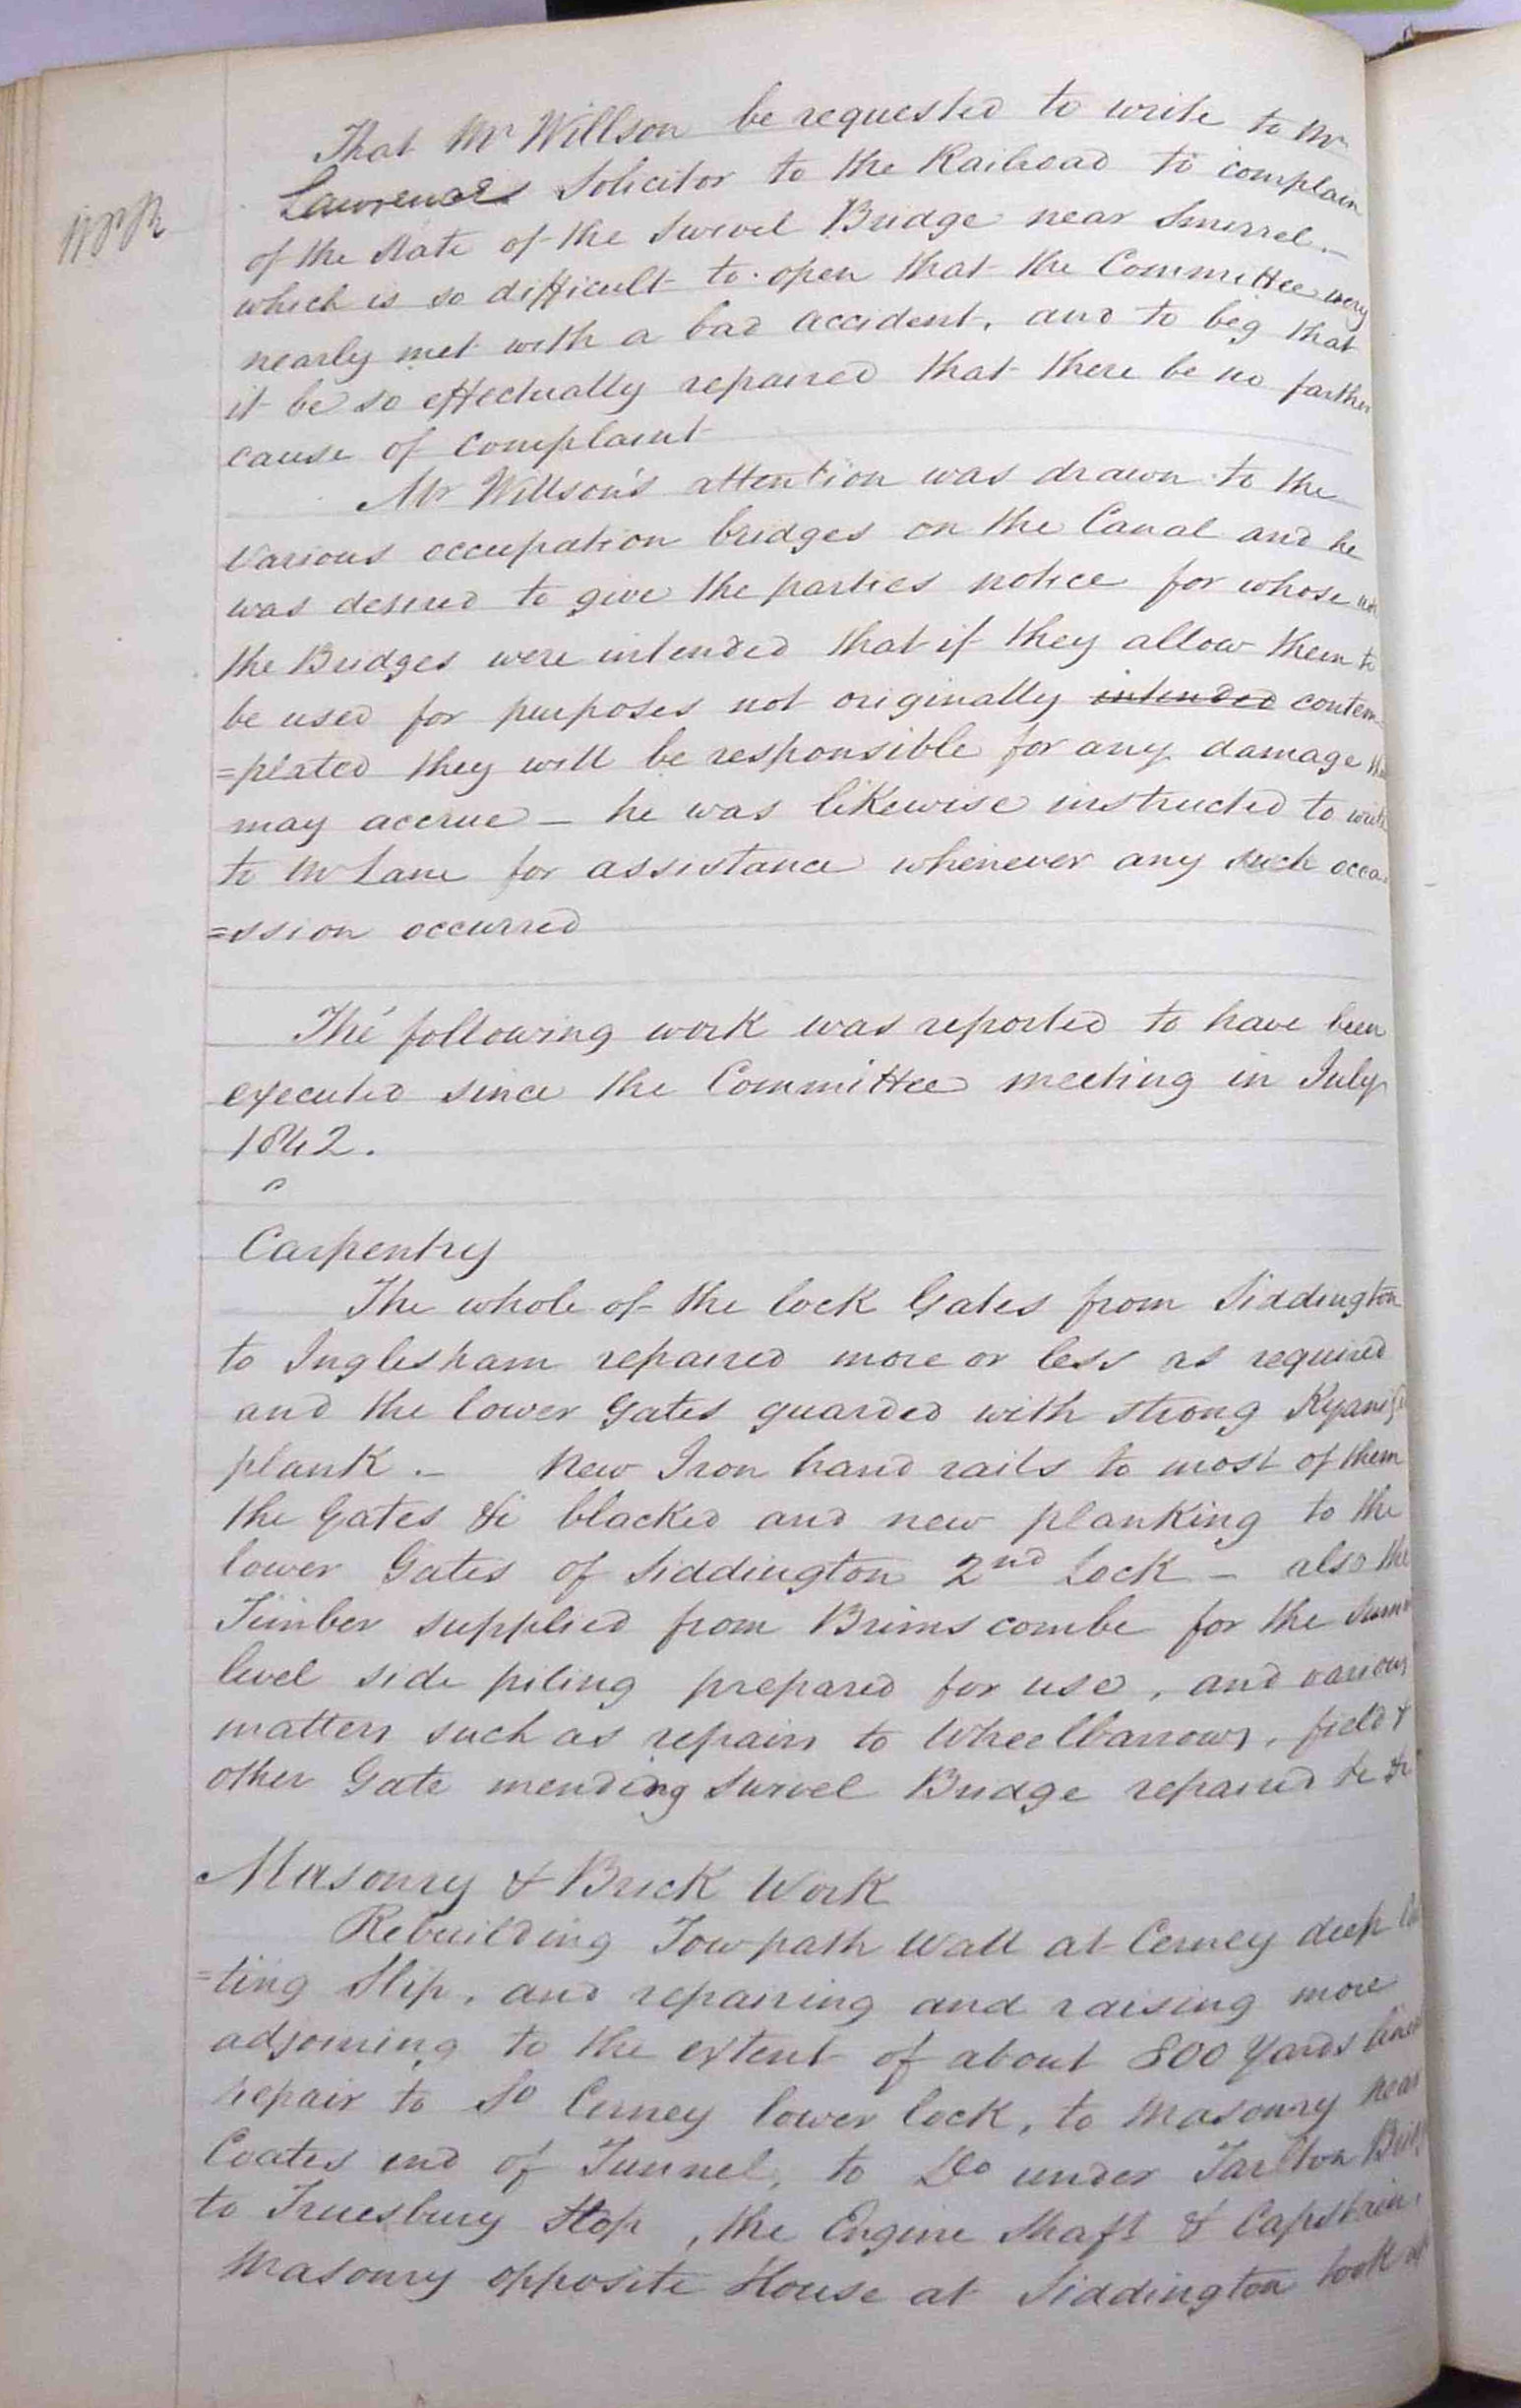 That Mr Willson be requested to write to Mr
Lawrence Solicitor to the Railroad to complain
of the State of the Swivel Bridge near Smerrel
which is so difficult to open that the Committee very
nearly met with a bad accident, and to beg that
it be so effectually repaired that there be no farther
cause of complaint
Mr Willson's attention was drawn to the
various occupation bridges on the Canal and he
was desired to give the parties notice for whose
the Bridges were intended that if they allow them to
be used for purposes not originally intended contem
=plated they will be responsible for any damage
may accrue – he was likewise instructed to write
to Mr Lane for assistance whenever any such occa
=ssion occurred
The following work was reported to have been
executed since the Committee meeting in July
1842.
Carpentry
The whole of the lock Gates from Siddington
to Inglesham repaired more or less as required
and the lower Gates guarded with strong
plank. – New Iron hand rails to most of them
the Gates &c blacked and new planking to the
lower Gates of Siddington 2nd Lock – also the
Timber supplied from Brimscombe for the
level side piling prepared for use, and various
matters such as repairs to Wheelbarrows, field &
other Gate mending Swivel Bridge repaired &c &c
Masonry & Brick Work
Rebuilding Towpath Wall at Cerney deep
=ting Slip, and repairing and raising more
adjoining to the extent of about 800 Yards
repair to So Cerney lower lock, to Masonry near
Coates end of Tunnel, to Do under Tarlton
to Truesbury Stop, the Engine Shaft & Capstain,
Masonry opposite House at Siddington took